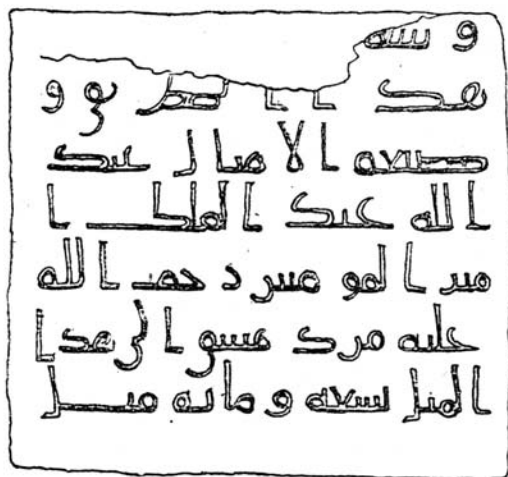 و
هذا الطريق و
صنعة الاميال عبد
الله عبد الملك ا
مير المومنين رحمت الله
عليه من دمشق الى هذا
الميل تسعة ومائة ميل